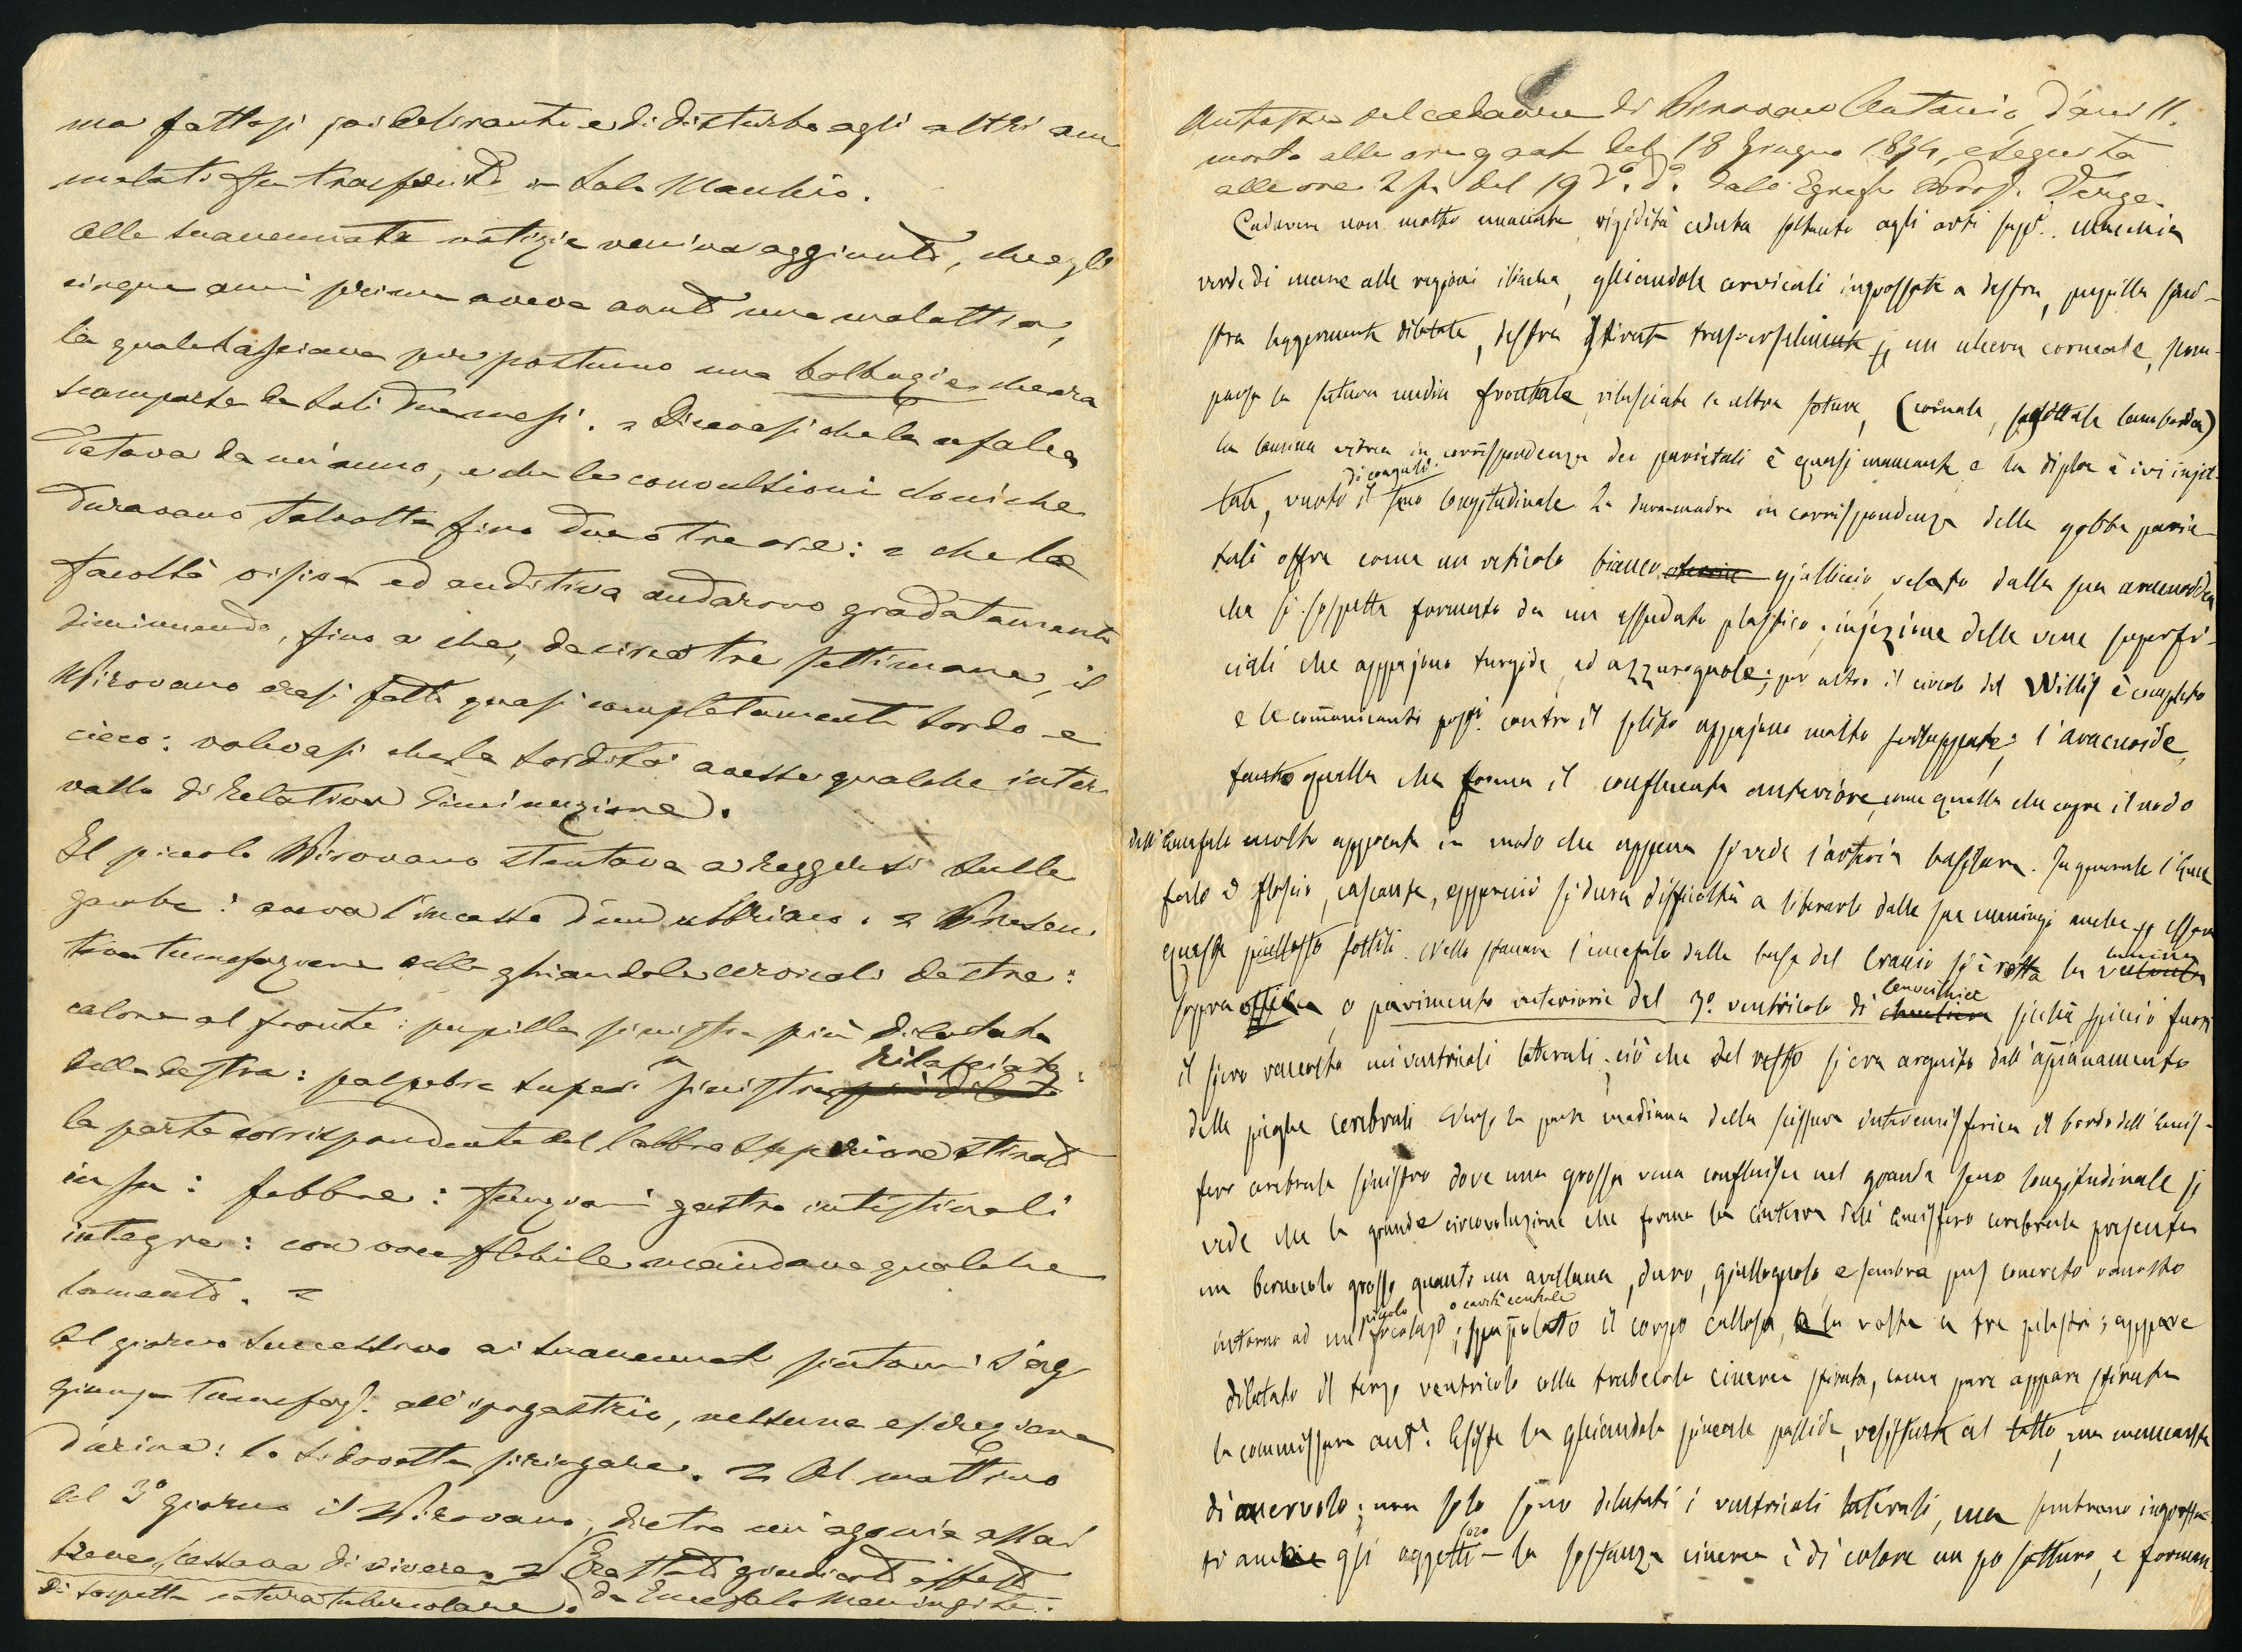 ma fattosi poi delirante e di disturbo agli altri am
malati fu trasferito in Sala Macchio.
Alle suaccennate notizie veniva aggiunto, che egli
cinque anni prima aveva avuto una malattia,
la quale lasciava per postumo una balbuzie che era
scomparsa da soli due mesi. Dicevasi che la cefalea
datava da un anno, e che le convulsioni cloniche
duravano talvolta fino due o tre ore: che la
facoltà visiva ed auditiva andarono gradatamente
diminuendo, fino a che, da circa tre settimane, il
Pirovano erasi fatto quasi completamente sordo e
cieco: volevasi che la sordità avesse qualche inter
vallo di relativa diminuzione.
Il piccolo Pirovano stentava a reggersi sulle
gambe: aveva l'incesso d'un ubbriaco. Presen
tava tumefazione delle ghiandole cervicali destre:
calore al fronte: pupilla sinistra più dilatata
della destra: palpebra super. sinistra rilasciata:
la parte corrispondente del labbro superiore stirata
in su: febbre: funzioni gastro intestinali
integre: con voce flebile mandava qualche
lamento.
Al giorno successivo ai suaccennati sintomi s'ag
giunse tumefaz. all'ipogastrio, nessuna espulsione
d'urina: lo si dovette siringare. Al mattino
del 3º giorno il Pirovano, dietro un'agonia assai
breve, cessava di vivere. Era stato giudicato affetto
da Encefalo Meningite
di sospetta natura tubercolare.
Autopsia del cadavere di Pirovano Antonio, d'anni 11.
morto alle ore 9 del 18 Giugno 1874, eseguita
alle ore 2 p. del 19 dº. dº. dall'Egregio Prof. Verga
Cadavere non molto emaciato, rigidità ceduta soltanto agli arti supri. macchia
verde di mare alle regioni iliache, ghiandole cervicali ingrossate a destra, pupilla sini-
stra leggermente dilatata, destra stirata trasversalmente p un ulcera corneale, scom-
parsa la sutura media frontale, rilasciate le altre suture, (coronale, sagittale lamboidea)
la lamina vitrea in corrispondenza dei parietali è quasi mancante e la diploe è ivi injet-
tata, vuoto di coaguli il seno longitudinale. La dura-madre in corrispondenza delle gobbe parie-
tali offre come un reticolo bianco gialliccio, velato dalla sua aracnoidea
che si sospetta formato da un essudato plastico; injezione delle vene superfi-
ciali che appajono turgide, ed azzurognole; per altro il circolo del Willis è completo
e le comunicanti post. contro il solito appajono molto sviluppate; l'aracnoide,
tanto quella che forma il confluente anteriore, come quella che copre il nodo
dell'encefalo molto opacata in modo che appena si vede l'arteria basilare. In generale l'ence
falo è floscio, cascante, epperciò si dura difficoltà a liberarlo dalle sue meningi anche p essere
queste piuttosto sottili. Nello staccare l'encefalo dalla base del Cranio si è rotta la lamina
sopra ottica, o pavimento anteriore del 3º. ventricolo di cenerino, sicchè spicciò fuori
il siero raccolto nei ventricoli laterali; ciò che del resto s'era arguito dall'appianamento
delle pieghe cerebrali. Verso la parte mediana della scissura interemisferica il bordo dell'emis-
fero cerebrale sinistro dove una grossa vena confluisce nel grande seno longitudinale si
vede che la grande circonvoluzione che forma la cintura dell'emisfero cerebrale presenta
un bernocolo grosso quanto un avellana, duro, giallognolo, e sembra pus concreto raccolto
intorno ad un piccolo focolajo o cavità centrale; spappolato il corpo calloso, la volta a tre pilastri; appare
dilatato il terzo ventricolo colla trabecola cinerea stirata, come pure appare stirata
la commissura antr. Esiste la ghiandola pineale pallida, resistente al tatto, ma mancante
di acervolo; non solo sono dilatati i ventricoli laterali, ma sembrano ingrossa-
ti anche gli oggetti loro – la sostanza cinerea è di colore un po fatturo, e forman